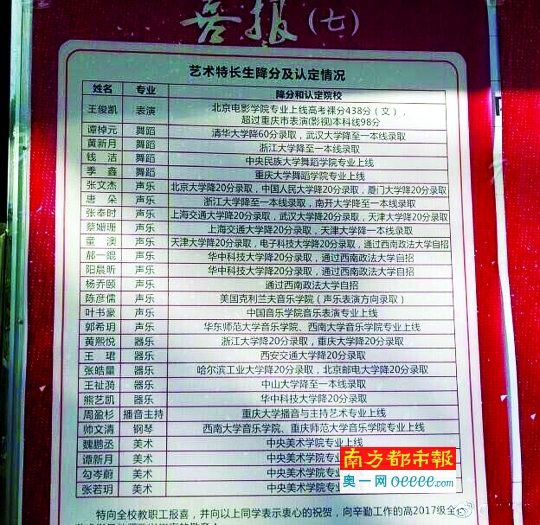 喜报(七)
艺术特长生降分及认定情况
姓名 专业 降分和认定院校
王俊凯 表演 北京电影学院专业上线高考裸分438分(文),
超过重庆市表演(影视)本科线98分
谭棹元 舞蹈 清华大学降60分录取,武汉大学降至一本线录取
黄新月 舞蹈 浙江大学降至一本线录取
钱 洁 舞蹈 中央民族大学舞蹈学院专业上线
季 鑫 舞蹈 重庆大学舞蹈学院专业上线
张文杰 声乐 北京大学降20分录取,中国人民大学降20分录取,厦门大学降20分录取
唐 朵 声乐 浙江大学降至一本线录取,南开大学降至一本线录取
张奉时 声乐 上海交通大学降20分录取,武汉大学降20分录取,天津大学降20分录取
蔡媚珊 声乐 上海交通大学降20分录取,天津大学降至一本线录取
童 澳 声乐 天津大学降20分录取,电子科技大学降20分录取,通过西南政法大学自招
郝一焜 声乐 华中科技大学降20分录取,通过西南政法大学自招
阳晨昕 声乐 华中科技大学降20分录取,通过西南政法大学自招
杨乔颐 声乐 通过西南政法大学自招
陈彦儒 声乐 美国克利兰夫音乐学院(声乐表演方向录取)
叶书豪 声乐 中国音乐学院音乐表演专业上线
郭希玥 声乐 华东师范大学音乐学院、西南大学音乐学院专业上线
黄熙悦 器乐 浙江大学降20分录取,重庆大学降20分录取
王 珺 器乐 西安交通大学降20分录取
张皓量 器乐 哈尔滨工业大学降20分录取,北京邮电大学降20分录取
王祉漪 器乐 中山大学降至一本线录取
熊艺凯 器乐 华中科技大学降20分录取
周盈杉 播音主持 重庆大学播音与主持艺术专业上线
帅文清 钢琴 西南大学音乐学院、重庆师范大学音乐学院专业上线
魏鹏丞 美术 中央美术学院专业上线
谭新月 美术 中央美术学院专
勾岑蔚 美术 中央美术学院专
张若玥 美术 中央美术学院专
南方都市報
奥一网 oeeee.com
特向全校教职工报喜,并向以上同学表示衷心的祝贺,向辛勤工作的高2017级全